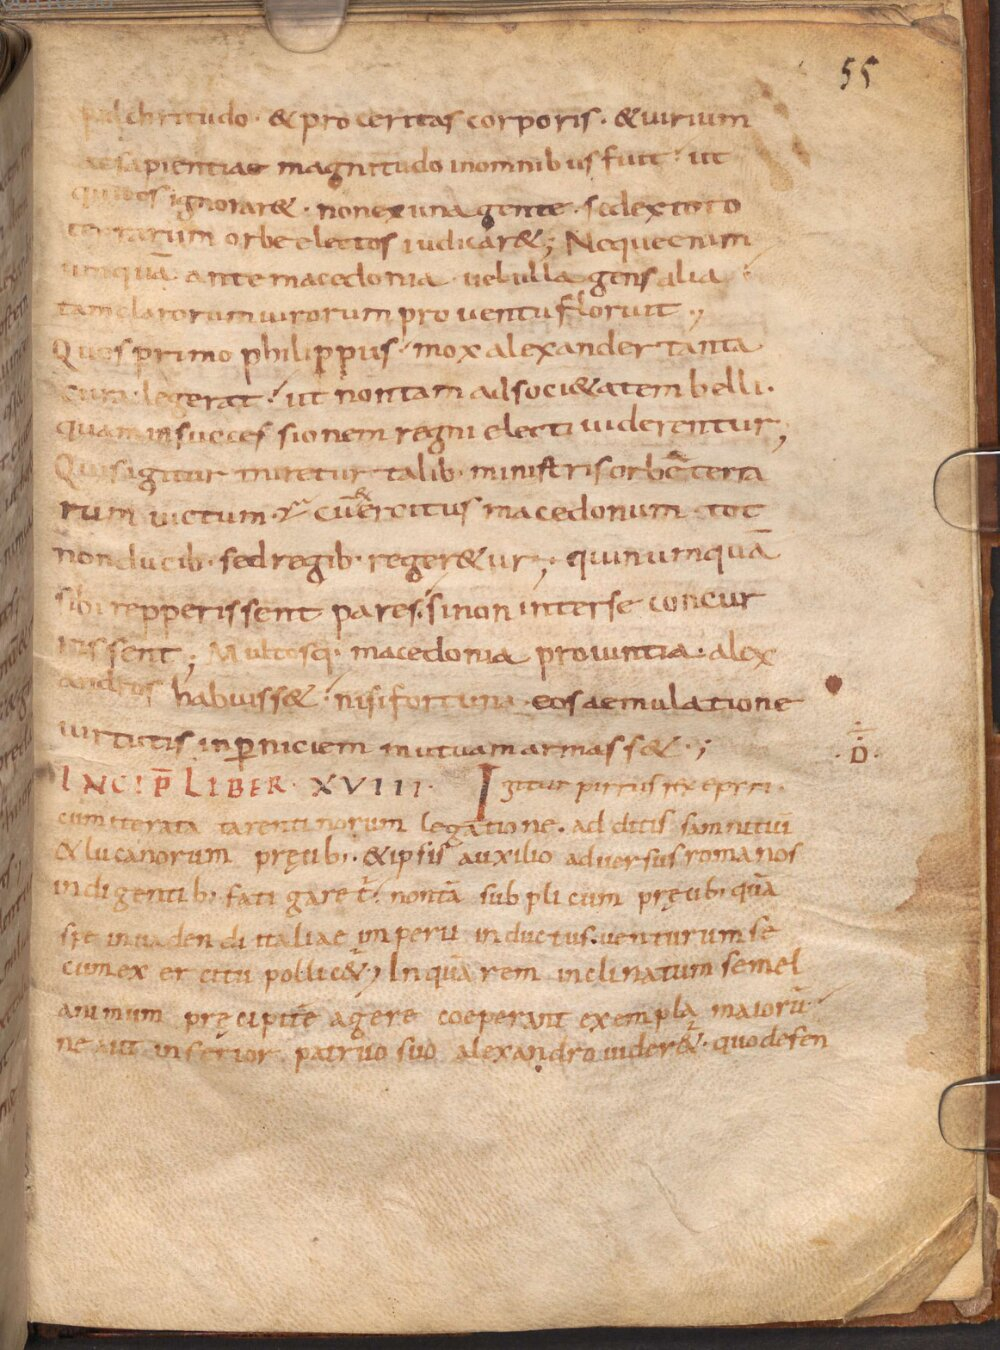 55
pulchritudo · & proceritas corporis · & uirium
ac sapientiae magnitudo inomnibus fuit · ut
qui eos ignorar& · nonexuna gente · sedextoto
terrarum orbe electos iudicar& ; Nequeenim
umquā ante macedonia uelulla gens alia
tamclarorum uirorum prouentu floruit ;
Quos primo philippus · mox alexander tanta
cura · legerat · ut nontam adsoci&atem belli ·
quam insuccessionem regni electi uiderentur ;
Quisigitur miretur talib· ministris orbē terra
rum uictum · cū exercitus macedonum tot
nonducib· sedregib· reger&ur ; · quinumquā
sibi repperissent pares · sinon interse concur
rissent ; Multosq· macedonia prouintia · alex
andros habuiss& · nisifortuna eosaemulatione
uirtutis inperniciem mutuam armass& · ;
D
INCIP̄ LIBER · XVIII · Igitur pirrus rex epyri ·
cumiterata tarentinorum legatione · additis samnitiū
& lucanorum pręcib· · & ipsis auxilio aduersus romanos
indigentib· fatigaret · nontā supplicum pręcib· quā
spe inuadendi italiae imperii inductus · uenturum se
cumexercitu pollic&ur ; Inquā rem inclinatum semel
animum pręcipitē agere coeperant exempla maiorū ·
ne aut inferior patruo suo alexandro uider& · quodefen